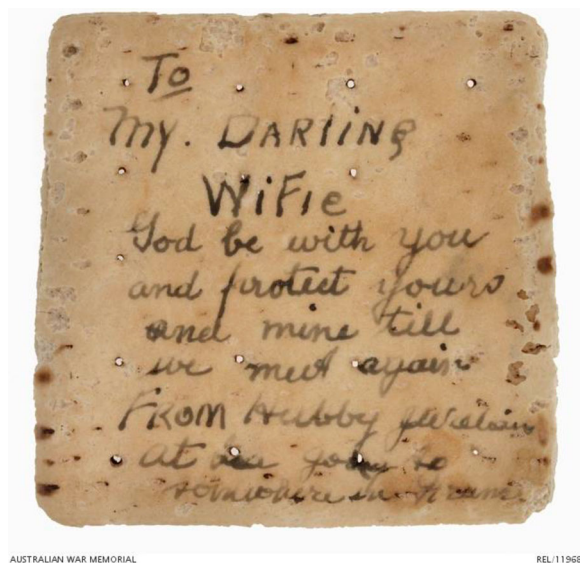 To
My. DARLING
WiFie
God be with you
and protect yours
and mine till
we meet again
FROM Hubby
at sea going to
somewhere in
AUSTRALIAN WAR MEMORIAL
REL/11968